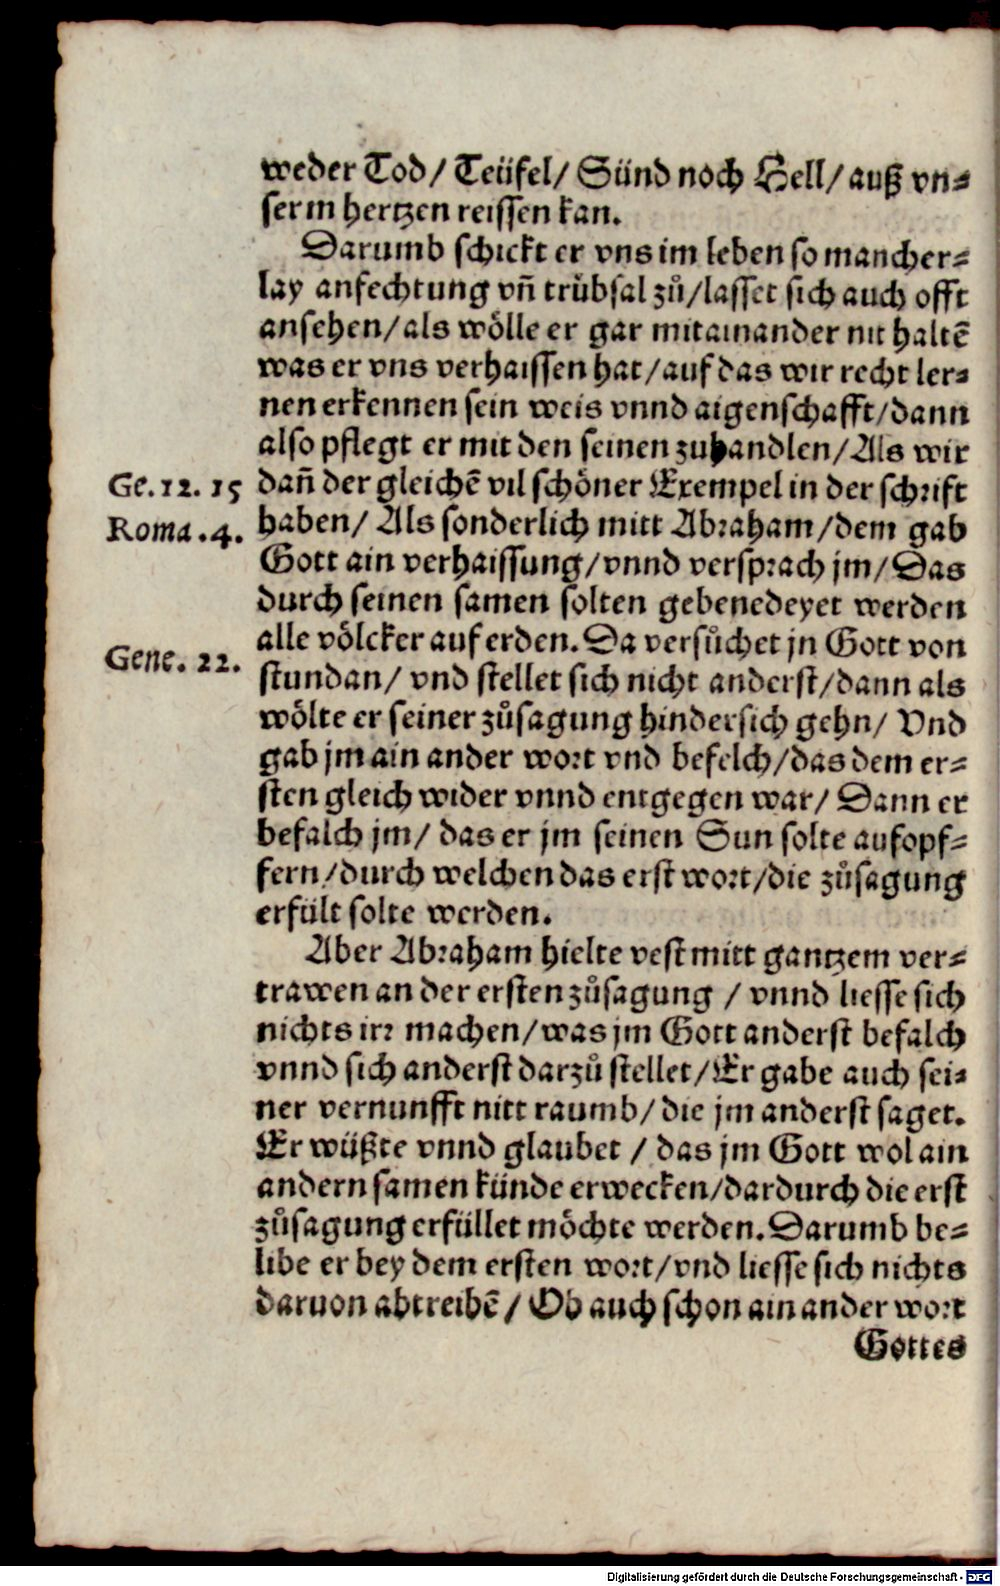 weder Tod/ Teüfel/ Sünd noch Hell/ auß vn⸗
serm hertzen reissen kan.
Darumb schickt er vns im leben so mancher⸗
lay anfechtung vñ trübsal zů/lasset sich auch offt
ansehen/als wölle er gar mitainander nit haltẽ
was er vns verhaissen hat/auf das wir recht ler⸗
nen erkennen sein weis vnnd aigenschafft/dann
also pflegt er mit den seinen zuhandlen/Als wir
Ge.12. 15
dañ der gleichẽ vil schöner Exempel in der schrift
Roma.4.
haben/ Als sonderlich mitt Abraham/dem gab
Gott ain verhaissung/vnnd versprach jm/Das
durch seinen samen solten gebenedeyet werden
alle völcker auf erden. Da versůchet jn Gott von
Gene. 22.
stundan/ vnd stellet sich nicht anderst/dann als
wölte er seiner zůsagung hindersich gehn/ Vnd
gab jm ain ander wort vnd befelch/das dem er⸗
sten gleich wider vnnd entgegen war/ Dann er
befalch jm/ das er jm seinen Sun solte aufopf⸗
fern/durch welchen das erst wort/die zůsagung
erfült solte werden.
Aber Abraham hielte vest mitt gantzem ver⸗
trawen an der ersten zůsagung / vnnd liesse sich
nichts irr machen/was jm Gott anderst befalch
vnnd sich anderst darzů stellet/Er gabe auch sei⸗
ner vernunfft nitt raumb/die jm anderst saget.
Er wüßte vnnd glaubet / das jm Gott wol ain
andern samen künde erwecken/dardurch die erst
zůsagung erfüllet möchte werden. Darumb be⸗
libe er bey dem ersten wort/vnd liesse sich nichts
daruon abtreibẽ/ Ob auch schon ain ander wort
Gottes
Digitalisierung gefördert durch die Deutsche Forschungsgemeinschaft - DFG